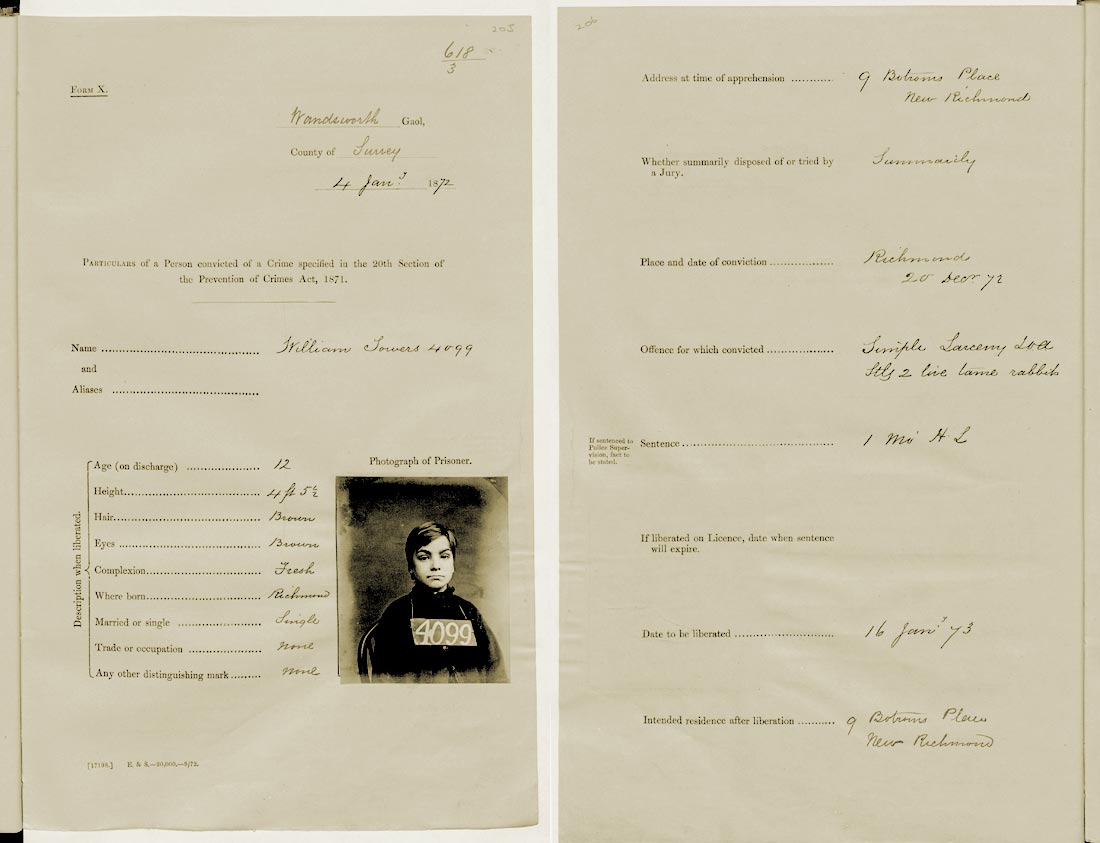 203
618
3
FORM X.
Wandsworth Gaol,
County of Surrey
4 Jany 1872
PARTICULARS of a Person convicted of a Crime specified in the 20th Section of
the Prevention of Crimes Act, 1871.
Name William Towers 4099
and
Aliases
Description when liberated.
Age (on discharge) 12
Height 4 ft 5 ½
Hair Brown
Eyes Brown
Complexion Fresh
Where born Richmond
Married or single Single
Trade or occupation None
Any other distinguishing mark None
Photograph of Prisoner.
4099
[17198.] E. & S.—20,000.—8/72.
206
Address at time of apprehension 9 Place
New Richmond
Whether summarily disposed of or tried by Summarily
a Jury.
Place and date of conviction Richmond
20 Decr 72
Offence for which convicted Simple Larceny
Stlg 2 live tame rabbits
If sentenced to
Police Super-
vision, fact to
be stated.
Sentence 1 Mo H L
If liberated on Licence, date when sentence
will expire.
Date to be liberated 16 Jany 73
Intended residence after liberation 9 Place
New Richmond